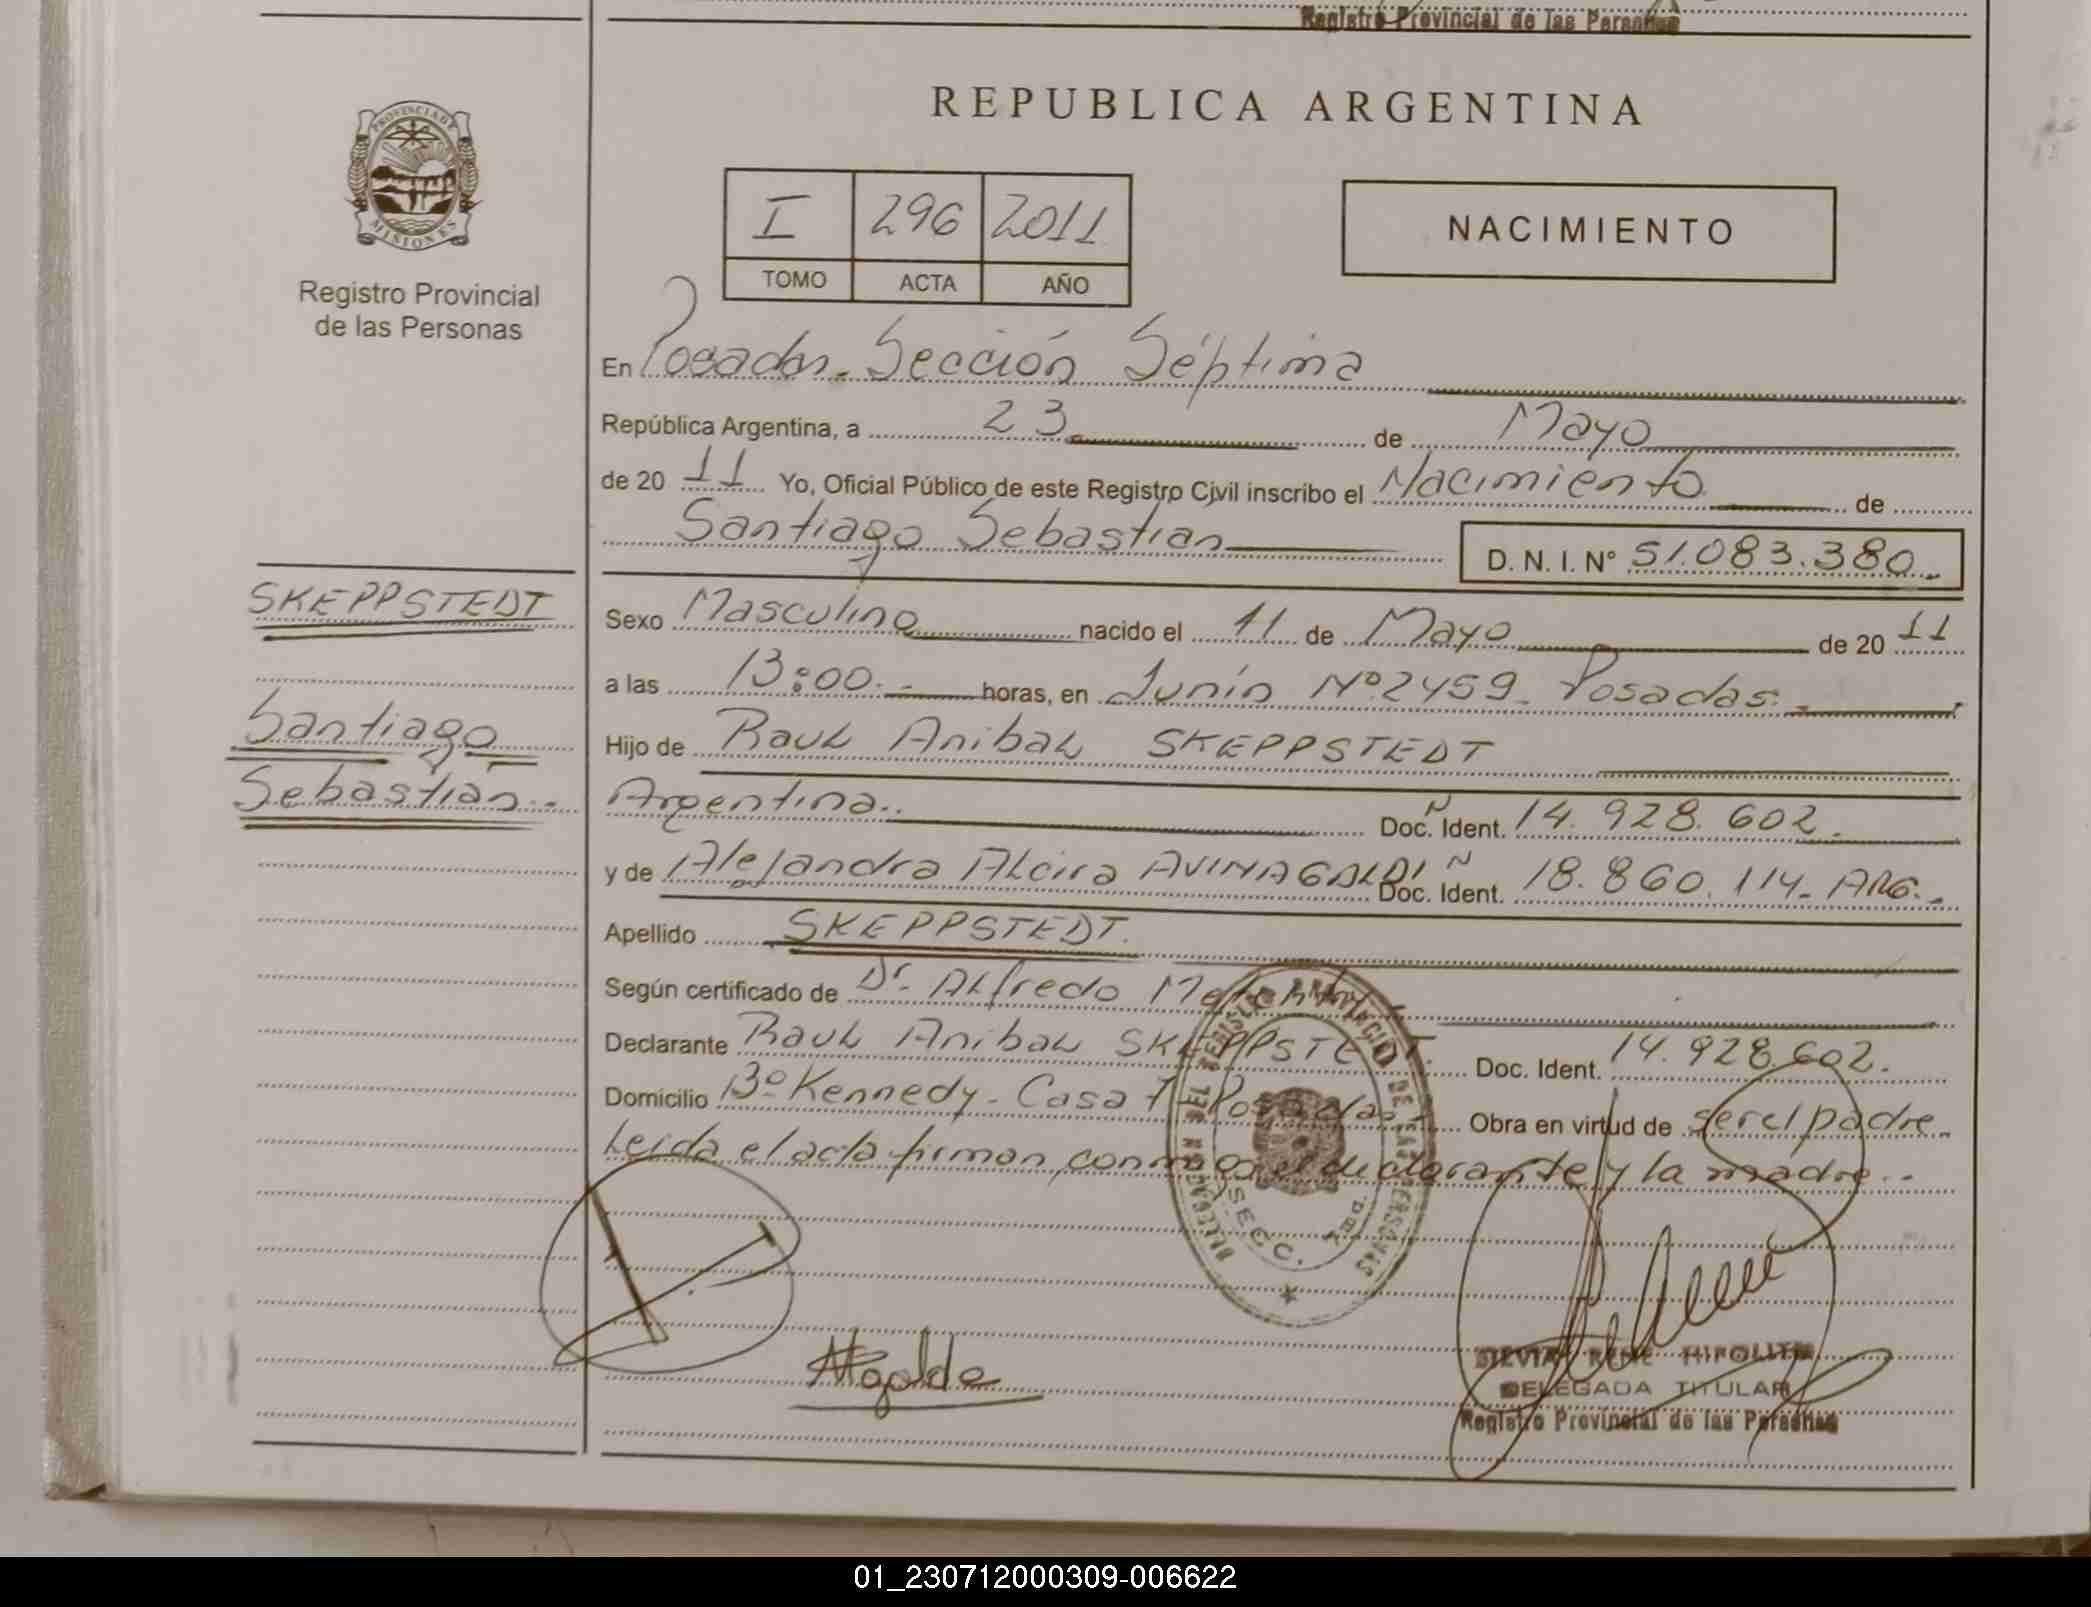 Registro Provincial de las Personas
PROVINCIA DE
MISIONES
Registro Provincial
de las Personas
REPUBLICA ARGENTINA
I 296 2011
TOMO ACTA AÑO
NACIMIENTO
En Posadas. Sección Séptima
República Argentina, a 23 de Mayo
de 20 11 Yo, Oficial Público de este Registro Civil inscribo el Nacimiento de
Santiago Sebastian
D. N. I. N° 51.083.380
SKEPPSTEDT
Santiago
Sebastián
Sexo Masculino nacido el 11 de Mayo de 20 11
a las 13:00 horas, en Junín Nº 2459 - Posadas.
Hijo de Raul Anibal SKEPPSTEDT
Argentina. Doc. Ident. 14.928.602.
y de Alejandra Alcira Doc. Ident. 18.860.114. ARG.
Apellido SKEPPSTEDT.
Según certificado de Dr. Alfredo
Declarante Raul Anibal SKEPPSTEDT. Doc. Ident. 14.928.602.
Domicilio Bº Kennedy - Casa 7 Posadas Obra en virtud de ser el padre
Leída el acta firman conmigo el declarante y la madre
DELEGACION DEL REGISTRO PROVINCIAL DE LAS PERSONAS
SECC. 7
SILVIA RENE HIPOLITO
DELEGADA TITULAR
Registro Provincial de las Personas
01_230712000309-006622